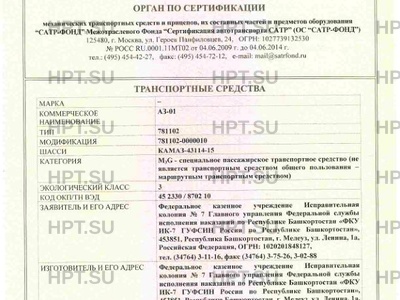 ОРГАН ПО СЕРТИФИКАЦИИ
механических транспортных средств и прицепов, их составных частей и предметов оборудования
"САТР-ФОНД" Межотраслевого Фонда "Сертификация автотранспорта САТР" (ОС "САТР-ФОНД")
125480, г. Москва, ул. Героев Панфиловцев, 24, ОГРН: 1027739132530
№ РОСС RU.0001.11МТ02 от 04.06.2009 г. до 04.06.2014 г.
тел.: (495) 454-42-27, факс: (495) 454-72-12, e-mail: mail@satrfond.ru
ТРАНСПОРТНЫЕ СРЕДСТВА
МАРКА –
КОММЕРЧЕСКОЕ НАИМЕНОВАНИЕ АЗ-01
ТИП 781102
МОДИФИКАЦИЯ 781102-0000010
ШАССИ КАМАЗ-43114-15
КАТЕГОРИЯ M3G - специальное пассажирское транспортное средство (не
является транспортным средством общего пользования –
маршрутным транспортным средством)
ЭКОЛОГИЧЕСКИЙ КЛАСС 3
КОД ОКП/ТН ВЭД 45 2330 / 8702 10
ЗАЯВИТЕЛЬ И ЕГО АДРЕС Федеральное казенное учреждение Исправительная
колония № 7 Главного управления Федеральной службы
исполнения наказаний по Республике Башкортостан «ФКУ
ИК-7 ГУФСИН России по Республике Башкортостан»,
453851, Республика Башкортостан, г. Мелеуз, ул. Ленина, 1а,
Российская Федерация, ОГРН: 1020201848127,
тел. (34764) 3-11-16, факс (34764) 3-75-26, 3-02-88
ИЗГОТОВИТЕЛЬ И ЕГО АДРЕС Федеральное казенное учреждение Исправительная
колония № 7 Главного управления Федеральной службы
исполнения наказаний по Республике Башкортостан «ФКУ
ИК-7 ГУФСИН России по Республике Башкортостан»,
HPT.SU